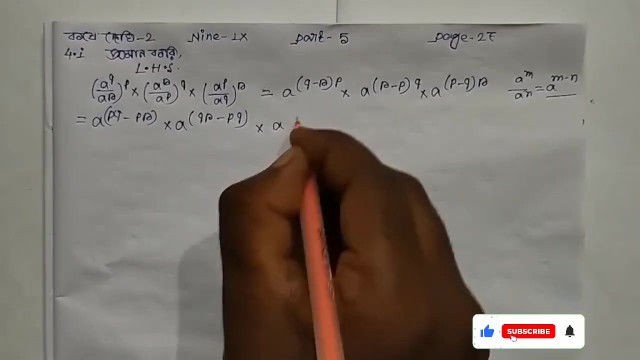 কষে দেখি-2 Nine-IX part-5 page-27
4.i প্রমাণ করি,
L.H.S.
(a^q/a^r)^p × (a^r/a^p)^q × (a^p/a^q)^r = a^(q-r)p × a^(r-p)q × a^(p-q)r a^m/a^n = a^m-n
= a^(pq-pr) × a^(qr-pq) × a
SUBSCRIBE